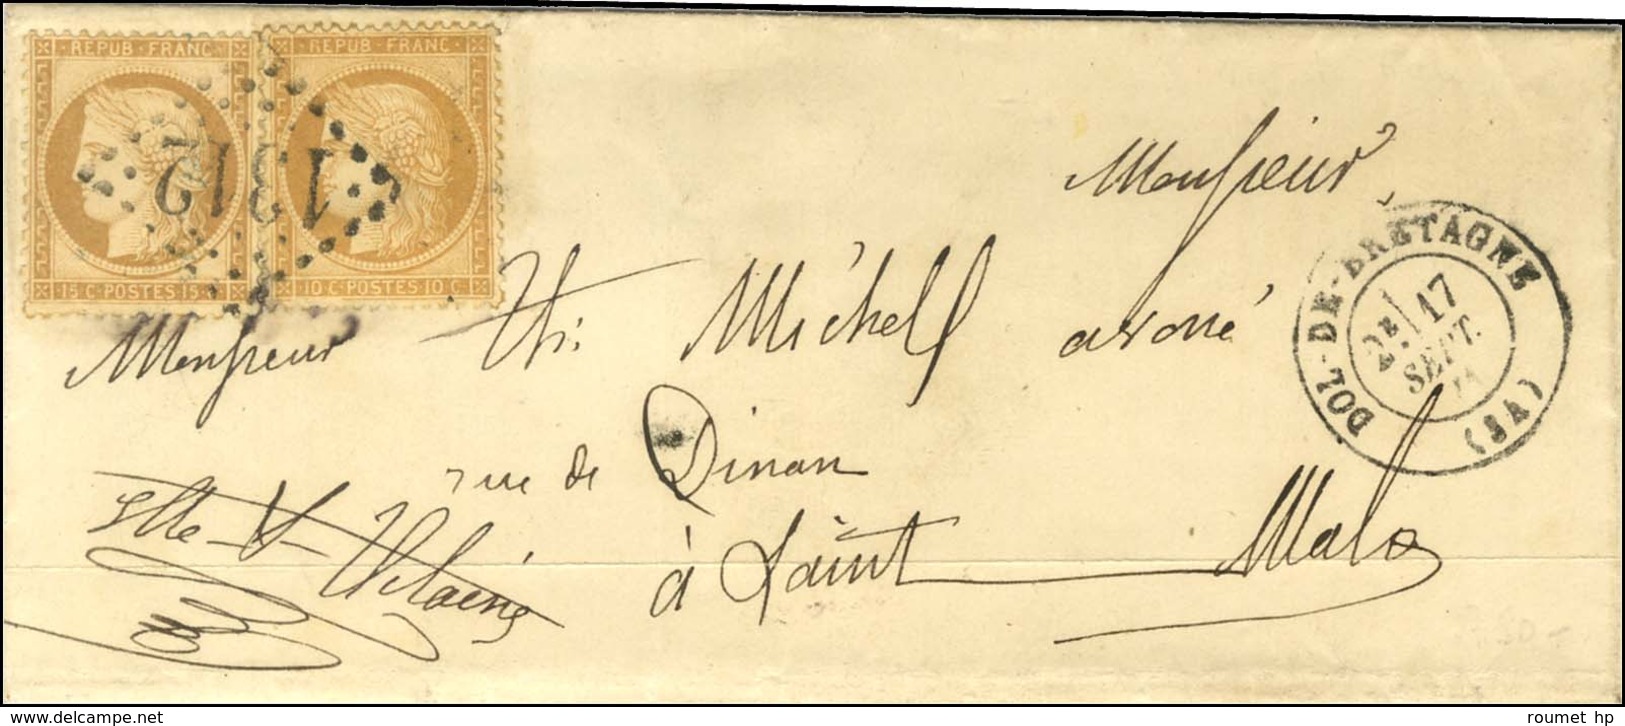 REPUB · FRANC ·
15 C · POSTES · 15 C
REPUB · FRANC ·
10 C · POSTES · 10 C
1312
Monsieur
DOL-DE-BRETAGNE
2E 17
SEPT.
71
(34)
Monsieur Th: Michell avoué
rue de Dinan
à Saint Malo
Ille & Vilaine
www.delcampe.net
roumet_hp